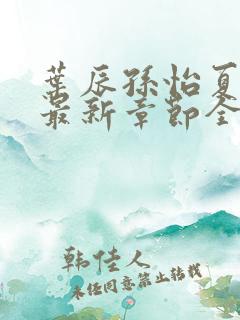 葉辰孫怡夏
最新章節全
韩佳人
未经同意禁止转载